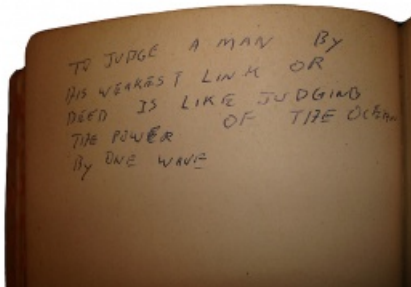 TO JUDGE A MAN BY
HIS WEAKEST LINK OR
DEED IS LIKE JUDGING
THE POWER OF THE OCEAN
By ONE WAVE